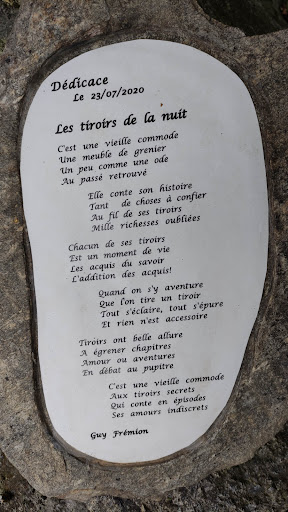 Dédicace
Le 23/07/2020
Les tiroirs de la nuit
C'est une vieille commode
Une meuble de grenier
Un peu comme une ode
Au passé retrouvé
Elle conte son histoire
Tant de choses à confier
Au fil de ses tiroirs
Mille richesses oubliées
Chacun de ses tiroirs
Est un moment de vie
Les acquis du savoir
L'addition des acquis!
Quand on s'y aventure
Que l'on tire un tiroir
Tout s'éclaire, tout s'épure
Et rien n'est accessoire
Tiroirs ont belle allure
A égrener chapitres
Amour ou aventures
En débat au pupitre
C'est une vieille commode
Aux tiroirs secrets
Qui conte en épisodes
Ses amours indiscrets
Guy Frémion